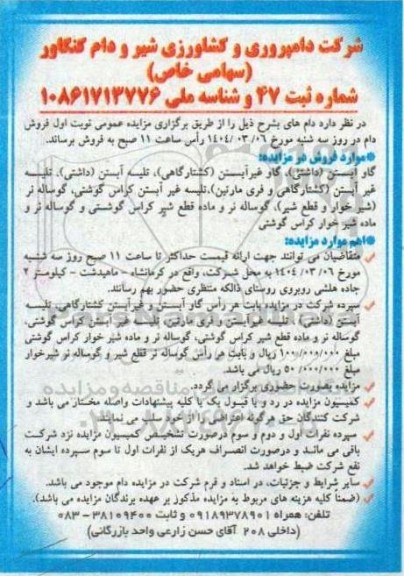 شرکت دامپروری و کشاورزی شیر و دام کنگاور
(سهامی خاص)
شماره ثبت ۴۷ و شناسه ملی ۱۰۸۶۱۷۱۳۷۷۶
در نظر دارد دام های بشرح ذیل را از طریق برگزاری مزایده عمومی نوبت اول فروش
دام در روز سه شنبه مورخ ۱۴۰۴/۰۳/۰۶ رأس ساعت ۱۱ صبح به فروش برساند.
*موارد فروش در مزایده:
گاو آبستن (داشتی)، گاو غیرآبستن (کشتارگاهی)، تلیسه آبستن (داشتی)، تلیسه
غیر آبستن (کشتارگاهی و فری مارتین)،تلیسه غیر آبستن کراس گوشتی، گوساله نر
(شیرخوار و قطع شیر)، گوساله نر و ماده قطع شیر کراس گوشتی و گوساله نر و
ماده شیر خوار کراس گوشتی
*اهم موارد مزایده:
✓ متقاضیان می توانند جهت ارائه قیمت حداکثر تا ساعت ۱۱ صبح روز سه شنبه
مورخ ۱۴۰۴/۰۳/۰۶ به محل شرکت، واقع در کرمانشاه - ماهیدشت - کیلومتر ۲
جاده هلشی روبروی روستای ذالکه منتظری حضور بهم رسانند.
✓ سپرده شرکت در مزایده بابت هر رأس گاو آبستن و غیرآبستن کشتارگاهی، تلیسه
آبستن داشتی، تلیسه غیرآبستن و فری مارتین، تلیسه غیر آبستن کراس گوشتی،
گوساله نر و ماده قطع شیر کراس گوشتی، گوساله نر و ماده شیر خوار کراس گوشتی
مبلغ ۱۰۰/۰۰۰/۰۰۰ ریال و بابت هر رأس گوساله نر قطع شیر و گوساله نر شیرخوار
مبلغ ۵۰/۰۰۰/۰۰۰ ریال می باشد.
✓ مزایده بصورت حضوری برگزار می گردد.
✓ کمیسیون مزایده در رد و یا قبول یک یا کلیه پیشنهادات واصله مختار می باشد و
شرکت کنندگان حق هرگونه اعتراضی را از خود سلب می نمایند.
✓ سپرده نفرات اول و دوم و سوم درصورت تشخیص کمیسیون مزایده نزد شرکت
باقی می ماند و درصورت انصراف هریک از نفرات اول تا سوم سپرده ایشان به
نفع شرکت ضبط خواهد شد.
✓ سایر شرایط و جزئیات، در اسناد و فرم شرکت در مزایده دام موجود می باشد.
✓ (ضمناً کلیه هزینه های مربوط به مزایده مذکور بر عهده برندگان مزایده می باشد).
تلفن: همراه ۰۹۱۸۹۳۷۸۹۰۱ و ثابت ۳۸۱۰۹۴۰۰ - ۰۸۳
(داخلی ۲۰۸ آقای حسن زارعی واحد بازرگانی)